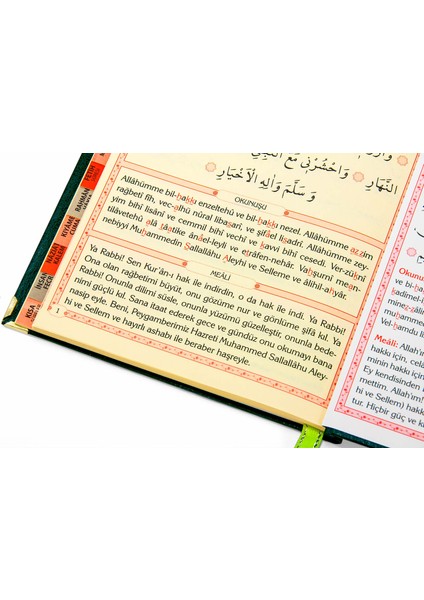 النَّهَارِ وَاحْشُرْنِي مَعَ النَّبِيِّ
وَسَلَّمَ وَاٰلِهِ الْاَخْيَارِ
OKUNUŞU
Allâhümme bil-hakkı enzeltehû ve bil-hakkı nezel. Allâhümme azzim
rağbetî fîh, vec-alhü nûral libasarî, ve şifâel lisadrî. Allâhümme zey-
yim bihî lisânî ve cemmil bihî vechî ve kavvi bihî cesedî. Ver-zuknî
tilâvetehû alâ tâatike ânâel-leyli ve etrâfen-nehâr. Vahşurnî mean-
nebiyyi Muhammedin Sallallâhu Aleyhi ve Selleme ve âlihil-ahyâr.
MEÂLİ
Ya Rabbi! Sen Kur'ân-ı hak ile indirdin, o da hak ile indi. Ya Rabbi!
Ona olan rağbetimi büyüt, onu gözüme nur ve gönlüme şifâ kıl. Ya
Rabbi! Onunla dilimi süsle, onunla yüzümü güzelleştir, onunla bede-
nimi güçlü kıl. Sana itaat ederek gece ve gündüz onu okumayı bana
nasip eyle. Beni, Peygamberimiz Hazreti Muhammed Sallallâhu Aley-
hi ve Sellem ve hayırlı ashabı ile beraber haşreyle.
1
FETİH
RAHMAN
KIYAME
CUMA
İNSAN
FECR
KISA
Okunu
ve bi-
kadîmel-
Vel-ham
Meâli: Allah'ım
hakkı için, celâ
minin hakkı içi
Ey kendisinden
mettim. Allah'ım!
hi ve Sellem) hakkı
tur. Hiçbir güç ve k